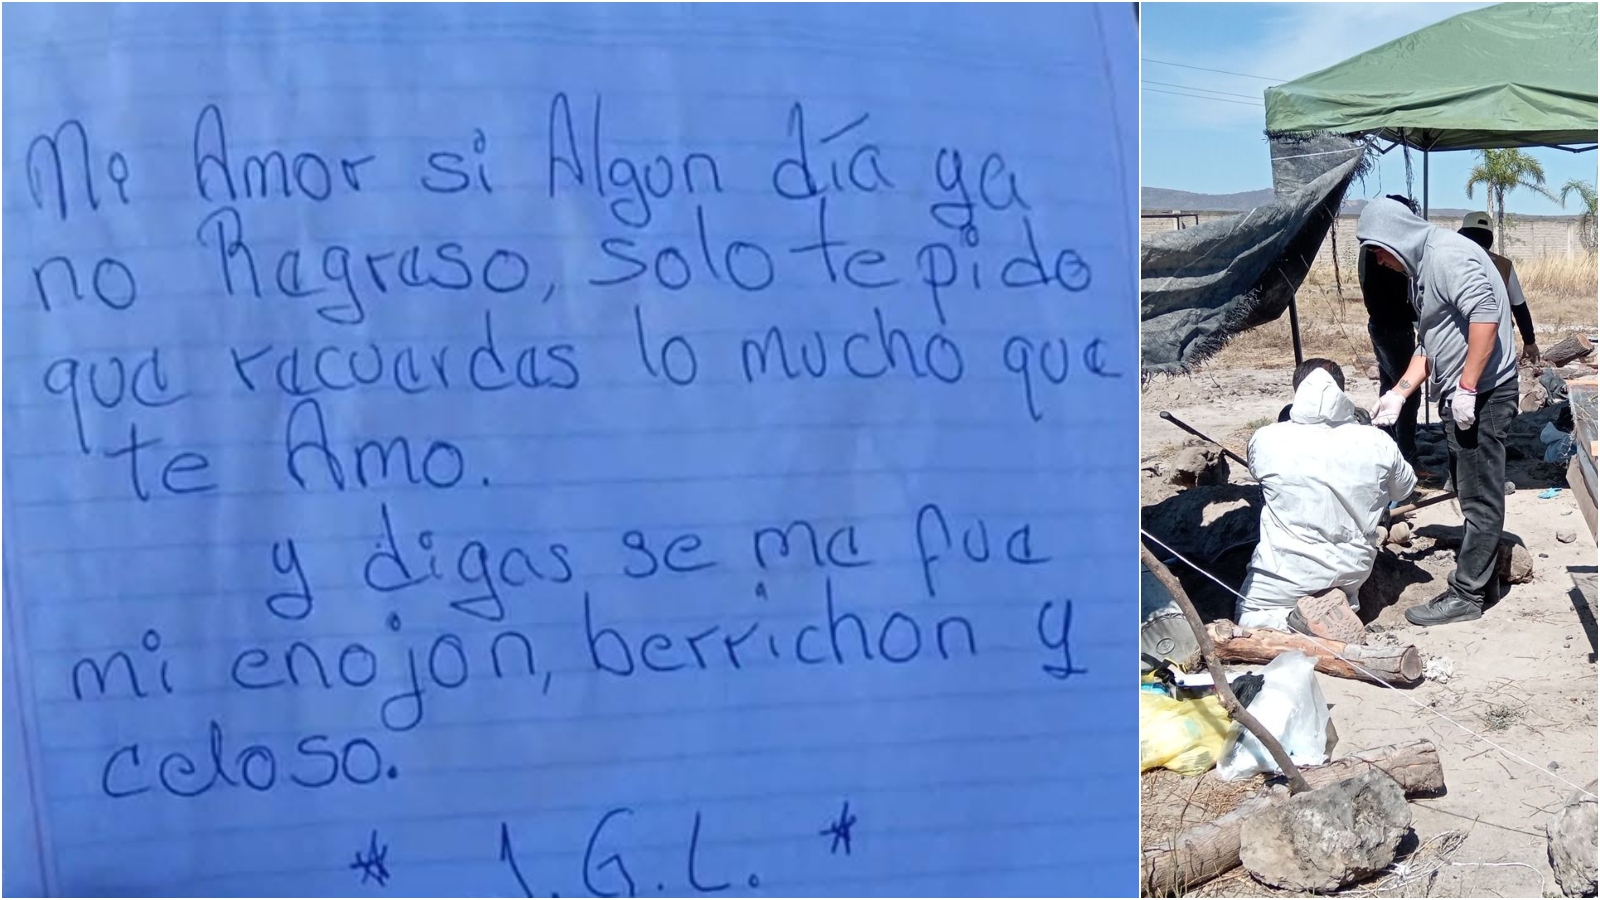 Mi Amor si Algun día ya
no Regreso, solo te pido
que recuerdes lo mucho que
te Amo.
y digas se me fue
mi enojon, berrichon y
celoso.
* J.G.L. *